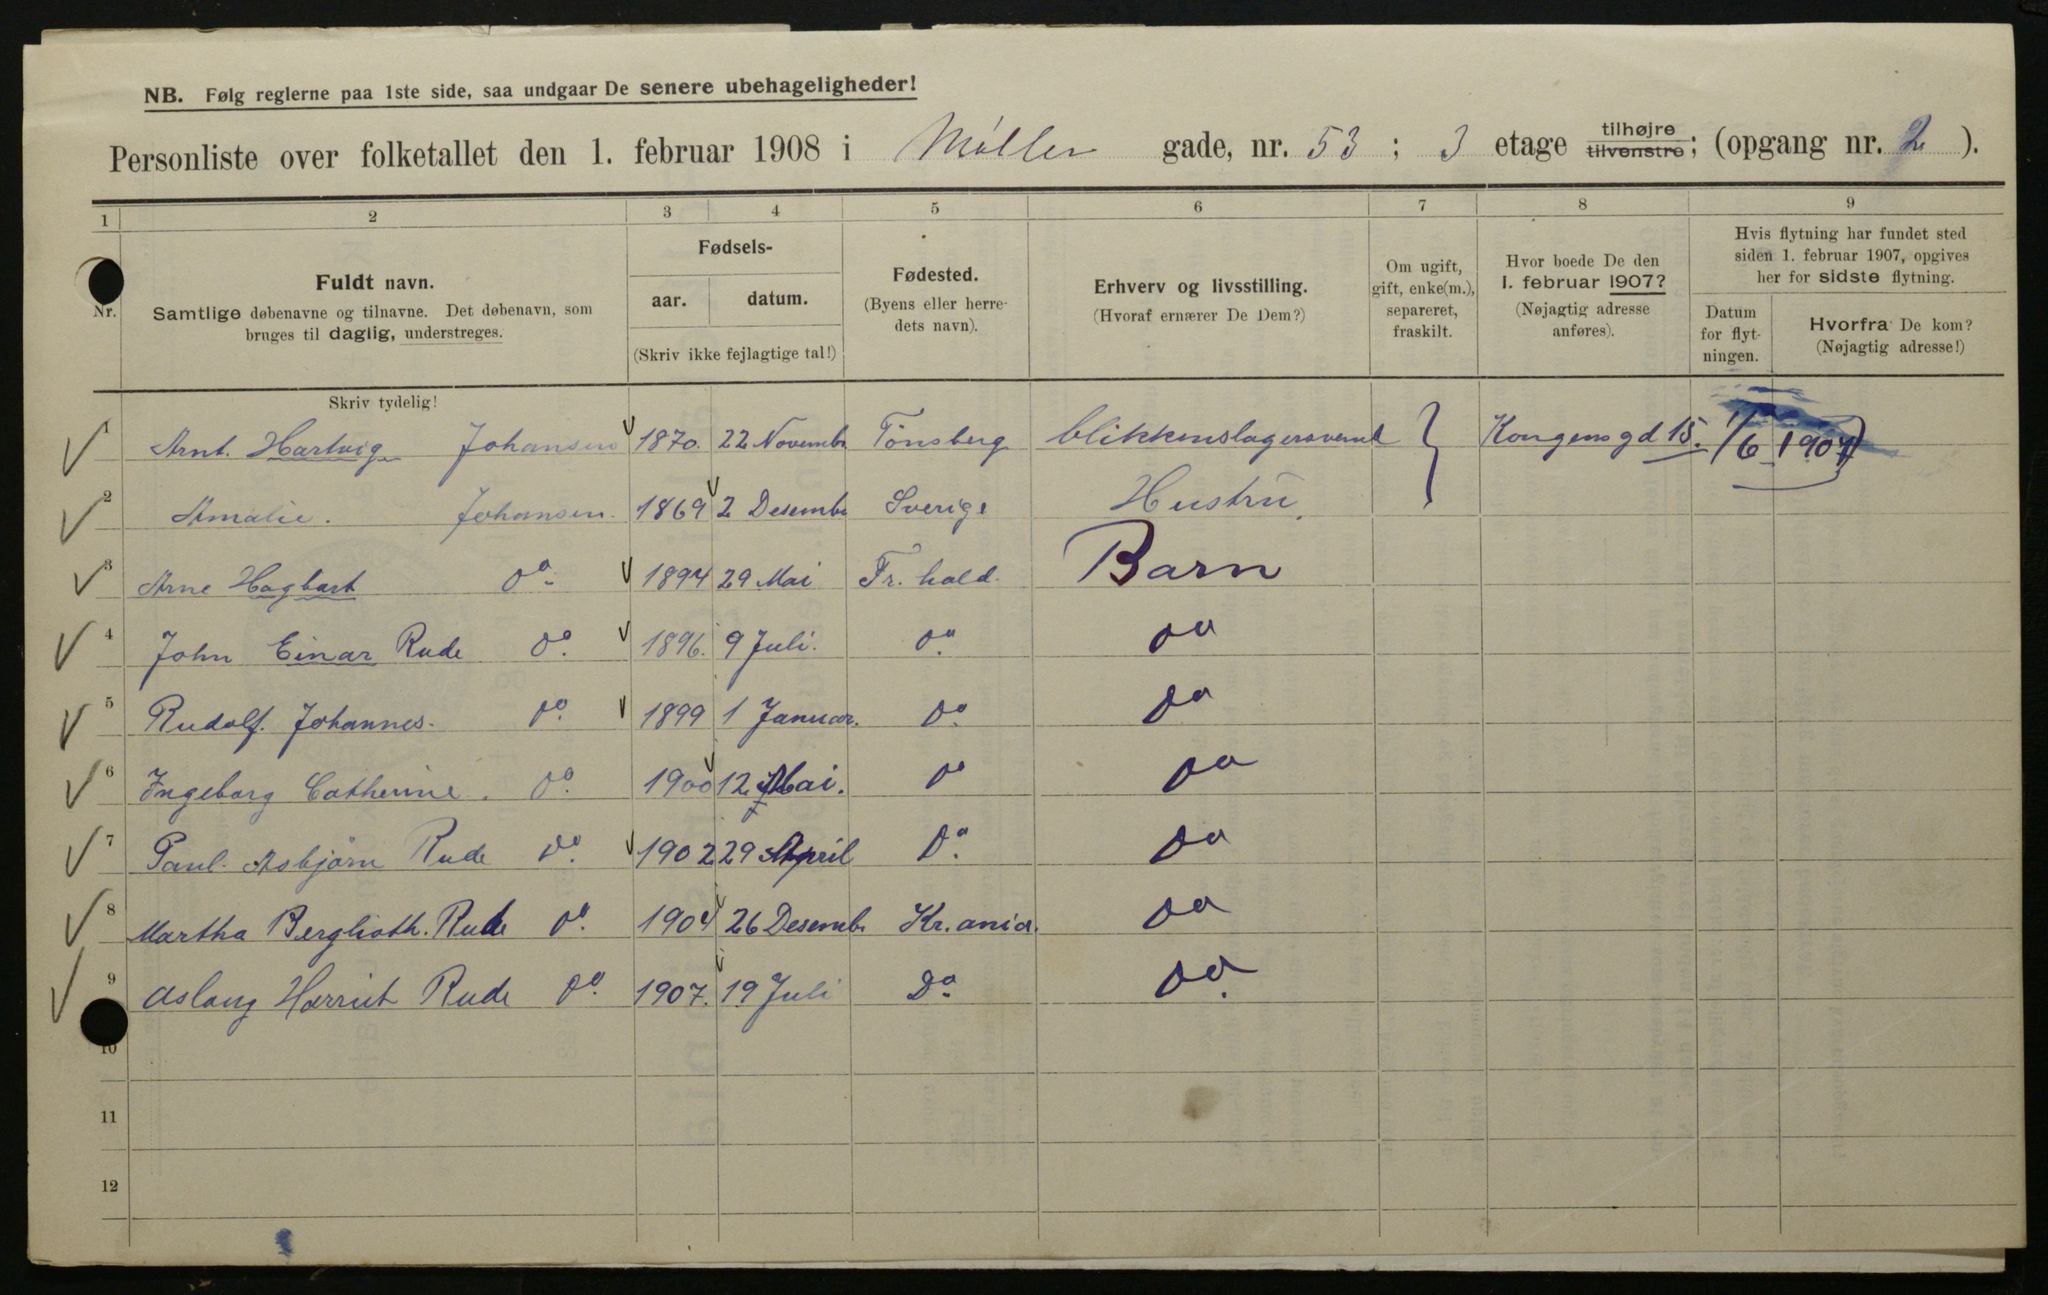 NB. Følg reglerne paa 1ste side, saa undgaar De senere ubehageligheder!
Personliste over folketallet den 1. februar 1908 i Møller gade, nr. 53 ; 3 etage tilhøjre tilvenstre; (opgang nr. 2 ).
1 2 3 4 5 6 7 8 9
Nr.
Fuldt navn.
Samtlige døbenavne og tilnavne. Det døbenavn, som
bruges til daglig, understreges.
Skriv tydelig!
Fødsels-
aar. datum.
(Skriv ikke fejlagtige tal!)
Fødested.
(Byens eller herre-
dets navn).
Erhverv og livsstilling.
(Hvoraf ernærer De Dem?)
Om ugift,
gift, enke(m.),
separeret,
fraskilt.
Hvor boede De den
1. februar 1907?
(Nøjagtig adresse
anføres).
Hvis flytning har fundet sted
siden 1. februar 1907, opgives
her for sidste flytning.
Datum
for flyt-
ningen.
Hvorfra De kom?
(Nøjagtig adresse!)
1 Arnt. Hartvig Johansen 1870. 22 Novembr Tönsberg blikkenslagersvend } Kongensgd 15. 1/6 1907
2 Amalie. Johansen. 1869 2 Desembr Sverige Hustru.
3 Arne Hagbart Do. 1894 29 Mai Fr. hald. Barn
4 John Einar Rude Do. 1896. 9 Juli. Do. Do
5 Rudolf. Johannes. Do. 1899 1 Januar. Do. Do
6 Ingeborg Catherine. Do. 1900 12 Mai. Do Do
7 Paul. Asbjörn Rude Do. 1902 29 April Do. Do
8 Martha Berglioth. Rude Do. 1904 26 Desembr Kr.ania. Do
9 Aslaug Harriet Rude Do. 1907. 19 Juli Do. Do.
10
11
12